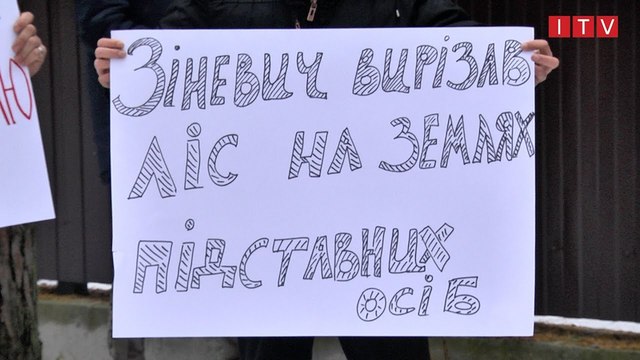 ITV
ЗІНЕВИЧ ВИРІЗАВ
ЛІС НА ЗЕМЛЯХ
ПІДСТАВНИХ
ОСІБ
Ю